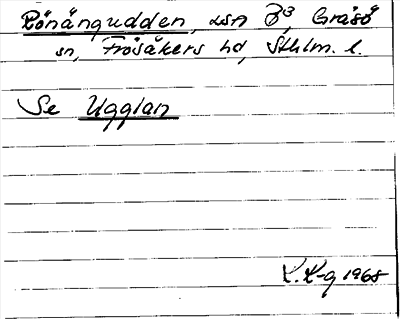 Rönängudden, LSA B3, Gräsö
sn, Frösåkers hd, Sthlm. l.
Se Ugglan
K. K-g 1968